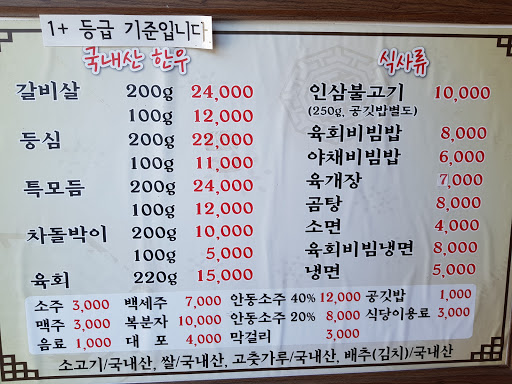 1+ 등급 기준입니다
국내산 한우
갈비살 200g 24,000
100g 12,000
등심 200g 22,000
100g 11,000
특모듬 200g 24,000
100g 12,000
차돌박이 200g 10,000
100g 5,000
육회 220g 15,000
식사류
인삼불고기 10,000
(250g, 공깃밥별도)
육회비빔밥 8,000
야채비빔밥 6,000
육개장 7,000
곰탕 8,000
소면 4,000
육회비빔냉면 8,000
냉면 5,000
소주 3,000 백세주 7,000 안동소주 40% 12,000 공깃밥 1,000
맥주 3,000 복분자 10,000 안동소주 20% 8,000 식당이용료 3,000
음료 1,000 대포 4,000 막걸리 3,000
소고기/국내산, 쌀/국내산, 고춧가루/국내산, 배추(김치)/국내산